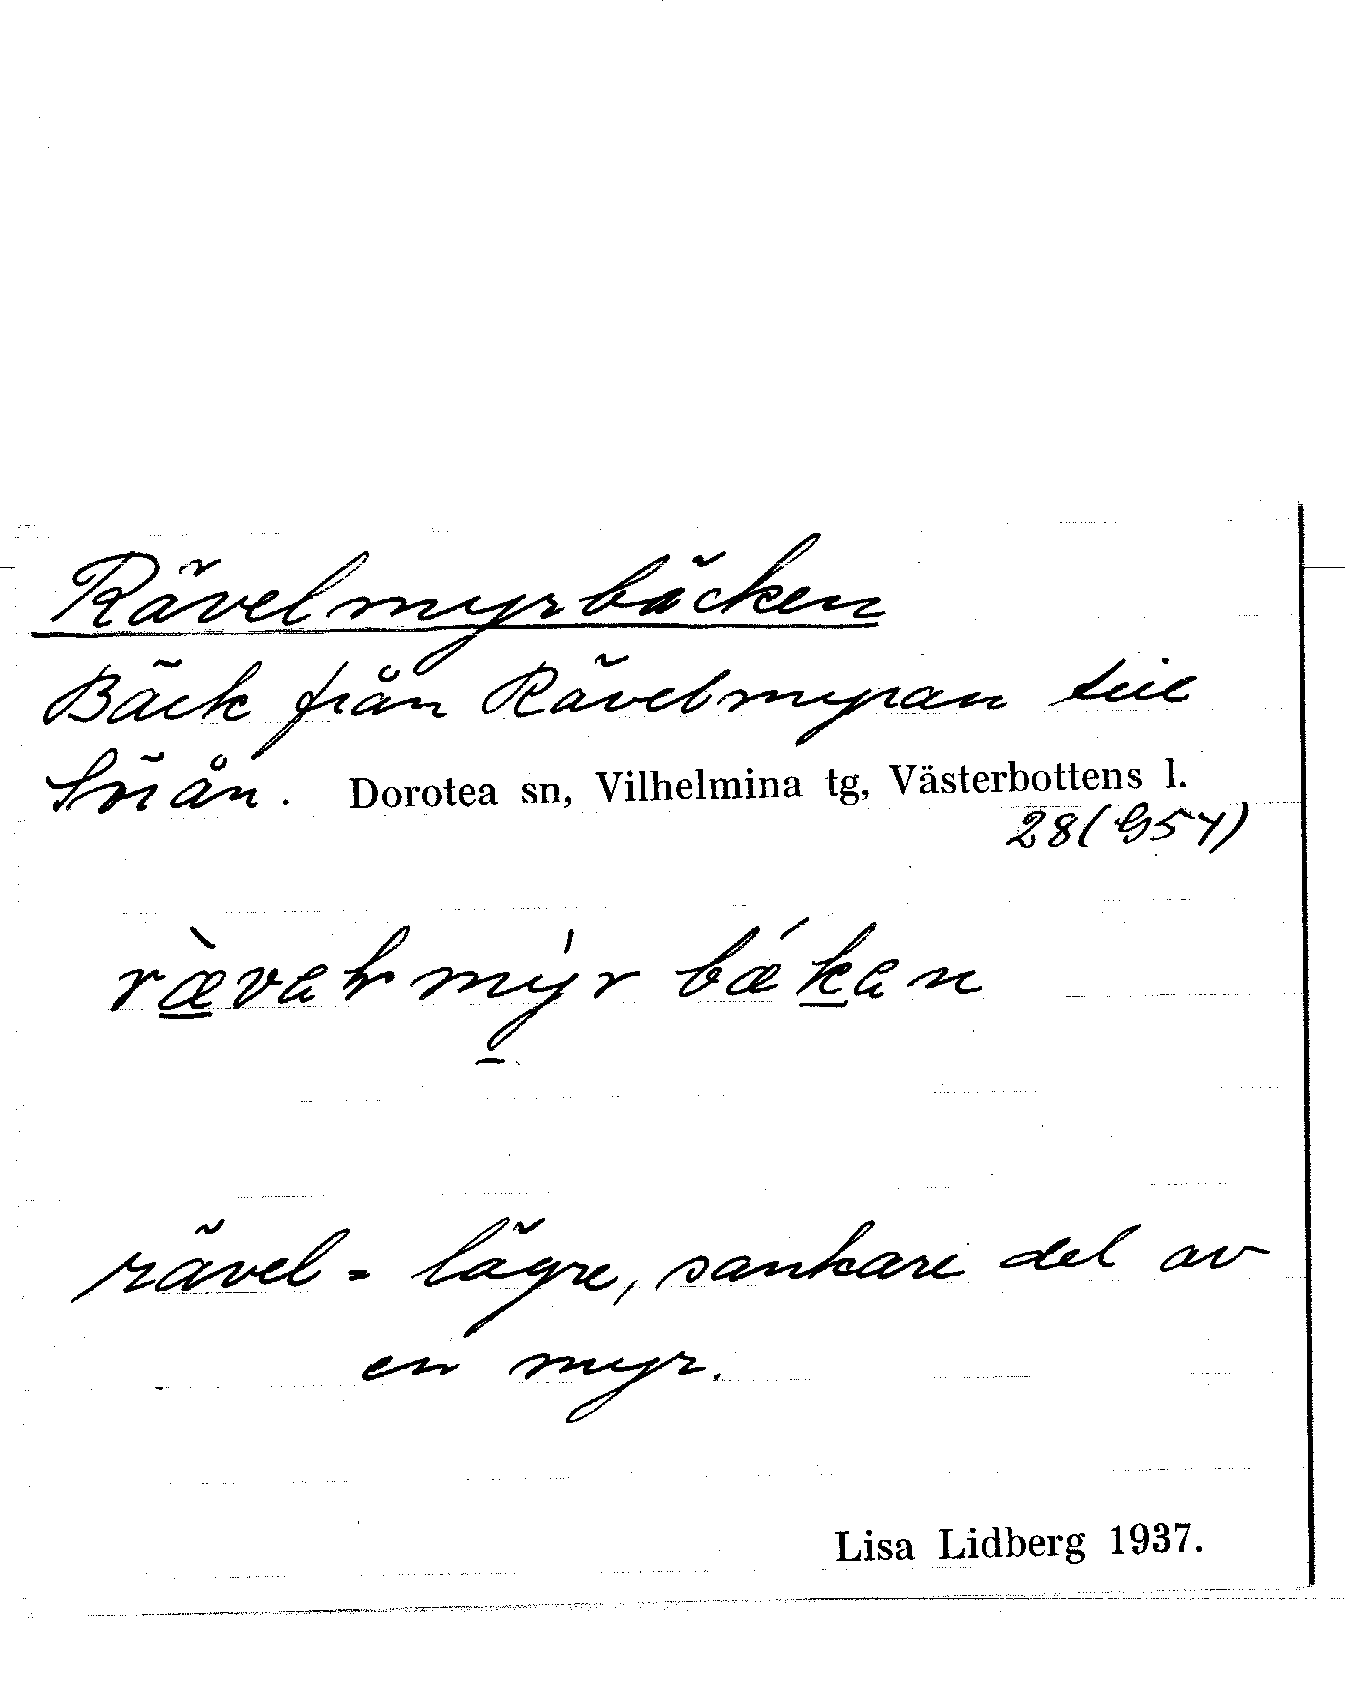 Rävelmyrbäcken
Bäck från Rävelmyran till
Dorotea sn, Vilhelmina tg, Västerbottens l.
28 (G54)
rävel = lägre, sankare del av
en myr.
Lisa Lidberg 1937.